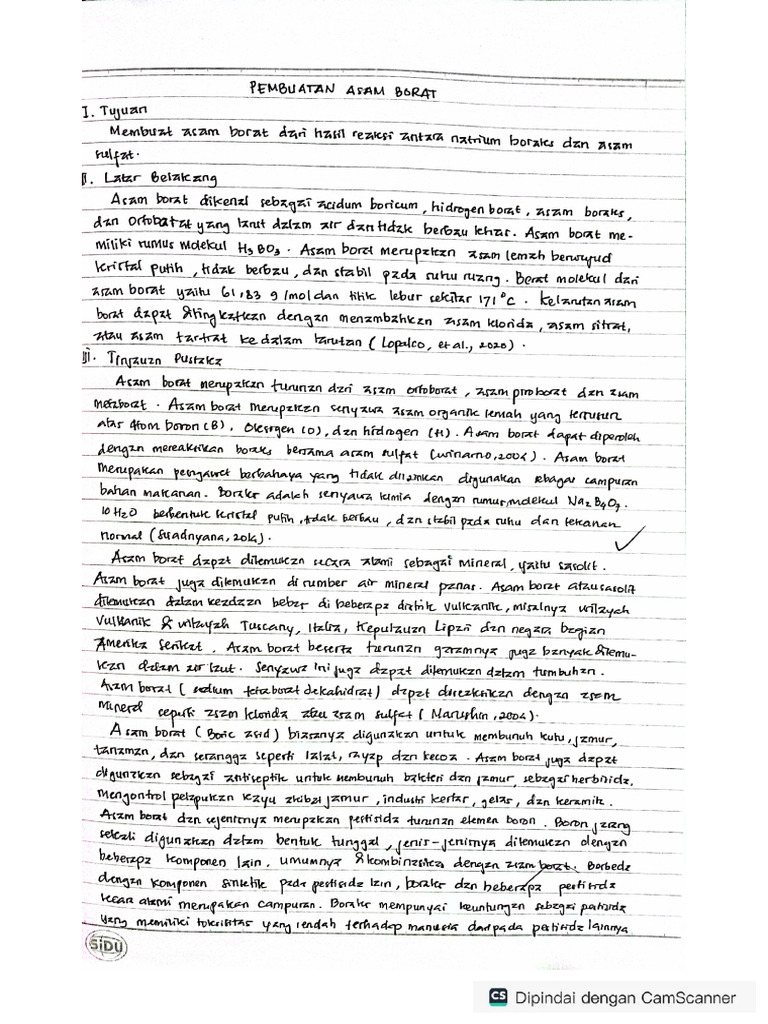 PEMBUATAN ASAM BORAT
I. Tujuan
Membuat asam borat dari hasil reaksi antara natrium boraks dan asam
sulfat.
II. Latar Belakang
Asam borat dikenal sebagai acidum boricum, hidrogen borat, asam boraks,
dan Ortoborat yang larut dalam air dan tidak berbau khas. Asam borat me-
miliki rumus molekul H3BO3. Asam borat merupakan asam lemah berwujud
kristal putih, tidak berbau, dan stabil pada suhu ruang. Berat molekul dari
asam borat yaitu 61,83 g/mol dan titik lebur sekitar 171°C. Kelarutan asam
borat dapat ditingkatkan dengan menambahkan asam klorida, asam sitrat,
atau asam tartrat ke dalam larutan (Lopalco, et al., 2020).
III. Tinjauan Pustaka
Asam borat merupakan turunan dari asam ortoborat, asam piroborat dan asam
metaborat. Asam borat merupakan senyawa asam organik lemah yang tersusun
atas Atom boron (B), Oksigen (O), dan hidrogen (H). Asam borat dapat diperoleh
dengan mereaktikan boraks bersama asam sulfat (Winarno, 2004). Asam borat
merupakan pengawet berbahaya yang tidak diizinkan digunakan sebagai campuran
bahan makanan. Boraks adalah senyawa kimia dengan rumus molekul Na2B4O7.
10 H2O berbentuk kristal putih, tidak berbau, dan stabil pada suhu dan tekanan
normal (Suadnyana, 2014).
Asam borat dapat ditemukan secara alami sebagai mineral, yaitu sasolit.
Asam borat juga ditemukan di sumber air mineral panas. Asam borat atau sasolit
ditemukan dalam keadaan bebas di beberapa distrik vulkanik, misalnya wilayah
vulkanik di wilayah Tuscany, Italia, Kepulauan Lipari dan negara bagian
Amerika Serikat. Asam borat beserta turunan garamnya juga banyak ditemu-
kan dalam air laut. Senyawa ini juga dapat ditemukan dalam tumbuhan.
Asam borat (sodium tetraborat dekahidrat) dapat direaksikan dengan asam
mineral seperti asam klorida atau asam sulfat (Marushin, 2004).
Asam borat (Boric asid) biasanya digunakan untuk membunuh kutu, jamur,
tanaman, dan serangga seperti lalat, rayap dan kecoa. Asam borat juga dapat
digunakan sebagai antiseptik untuk membunuh bakteri dan jamur, sebagai herbisida,
mengontrol pelapukan kayu akibat jamur, industri kertas, gelas, dan keramik.
Asam borat dan sejenisnya merupakan pestisida turunan elemen boron. Boron jarang
sekali digunakan dalam bentuk tunggal, jenis-jenisnya ditemukan dengan
beberapa komponen lain, umumnya dikombinasikan dengan asam borat. Berbeda
dengan komponen sintetik pada pestisida lain, boraks dan beberapa pestisida
secara alami merupakan campuran. Boraks mempunyai keuntungan sebagai pestisida
yang memiliki toksisitas yang rendah terhadap manusia daripada pestisida lainnya
SiDU
CS Dipindai dengan CamScanner